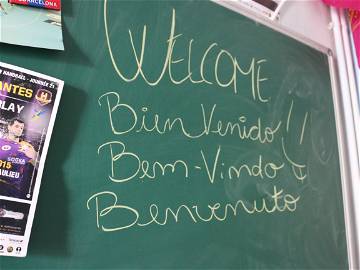 BARCELONA
HANDBALL - JOURNÉE 21
ANTES
PLAY
WELCOME
Bienvenido !!
Bem-Vindo !
Benvenuto